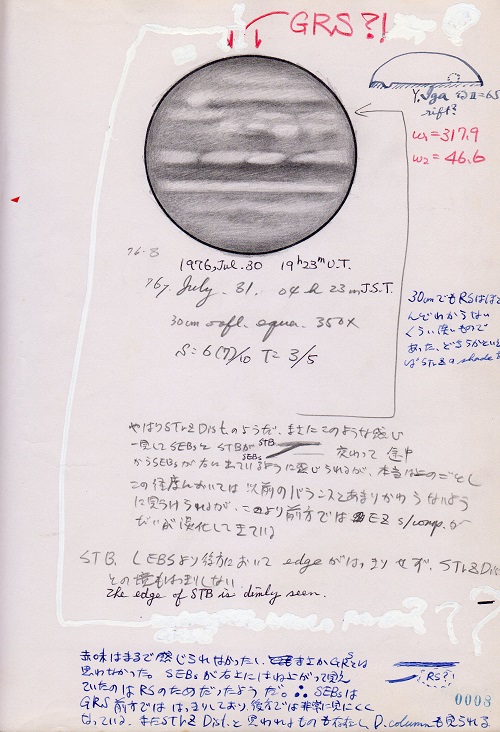 GRS?!
Y. Iga ω II = 65
rift?
ω1 = 317.9
ω2 = 46.6
76-8
1976, Jul. 30 19h23m U.T.
76y. July. 31. 04h 23m J.S.T.
30cm refl. equa. 350x
S = 6(7)/10 T = 3/5
30cmでもRSはほと
んどわからない
くらい淡いもので
あった、どちらかといえ
ばSTrZのshade
やはりSTrZ Dist.のようだ、まさにこのような感じ
一見してSEBsとSTBが 交わって途中
STB
SEBs
からSEBsが右に出ているように感じられるが、本当は上のごとし
この経度においては以前のバランスとあまりかわらないよう
に見うけられるが、これより前方では EZ s/comp. が
だいぶ淡化してきている
STB、LEBSより後方において edgeがはっきりせず、STrZ Dist
との境もはっきりしない
The edge of STB is dimly seen.
赤味はまるで感じられなかったし、まさかGRSとは
思わなかった。SEBsが右上にはね上がって見え
ていたのはRSのためだったようだ。∴ SEBsは
GRS前方でははっきりしており、後方では非常に見にくく
なっている。またSTrZ Dist.と思われるものも存在し D. columnも見られる
RS?
0008